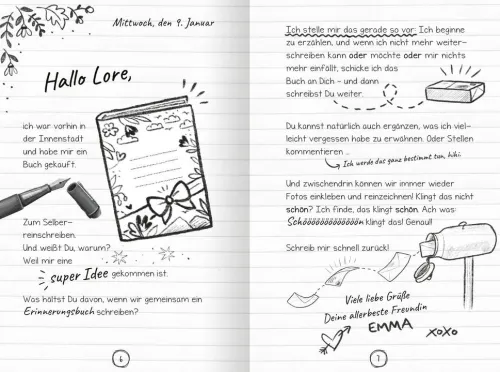 Mittwoch, den 9. Januar
Hallo Lore,
ich war vorhin in
der Innenstadt
und habe mir ein
Buch gekauft.
Zum Selber-
reinschreiben.
Und weißt Du, warum?
Weil mir eine
super Idee gekommen ist.
Was hältst Du davon, wenn wir gemeinsam ein
Erinnerungsbuch schreiben?
6
Ich stelle mir das gerade so vor: Ich beginne
zu erzählen, und wenn ich nicht mehr weiter-
schreiben kann oder möchte oder mir nichts
mehr einfällt, schicke ich das
Buch an Dich – und dann
schreibst Du weiter.
Du kannst natürlich auch ergänzen, was ich viel-
leicht vergessen habe zu erwähnen. Oder Stellen
kommentieren ...
Ich werde das ganz bestimmt tun, hihi.
Und zwischendrin können wir immer wieder
Fotos einkleben und reinzeichnen! Klingt das nicht
schön? Ich finde, das klingt schön. Ach was:
Schöööööööööööön klingt das! Genau!
Schreib mir schnell zurück!
Viele liebe Grüße
Deine allerbeste Freundin
EMMA
xoxo
7